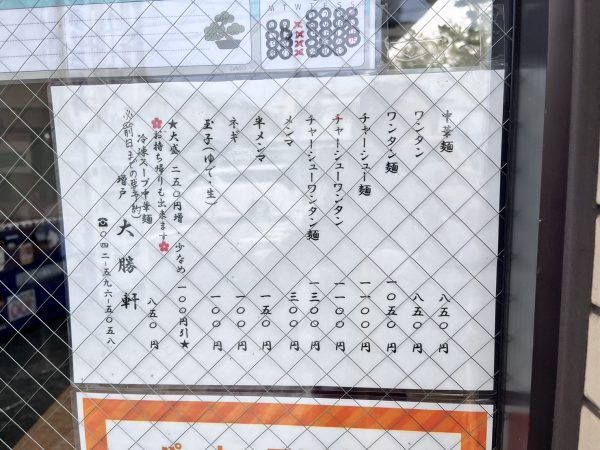 M T W T F S S
中華麺 八五〇円
ワンタン 八五〇円
ワンタン麺 一〇五〇円
チャーシュー麺 一一〇〇円
チャーシューワンタン 一一〇〇円
チャーシューワンタン麺 一三〇〇円
メンマ 三〇〇円
半メンマ 一五〇円
ネギ 一〇〇円
玉子(ゆで・生) 一〇〇円
★大盛 二五〇円増 少なめ 一〇〇円引★
お持ち帰りも出来ます
冷凍スープ中華麺 八五〇円
※前日までの要予約
増戸 大勝軒
☎〇四二-五九六-五〇五八